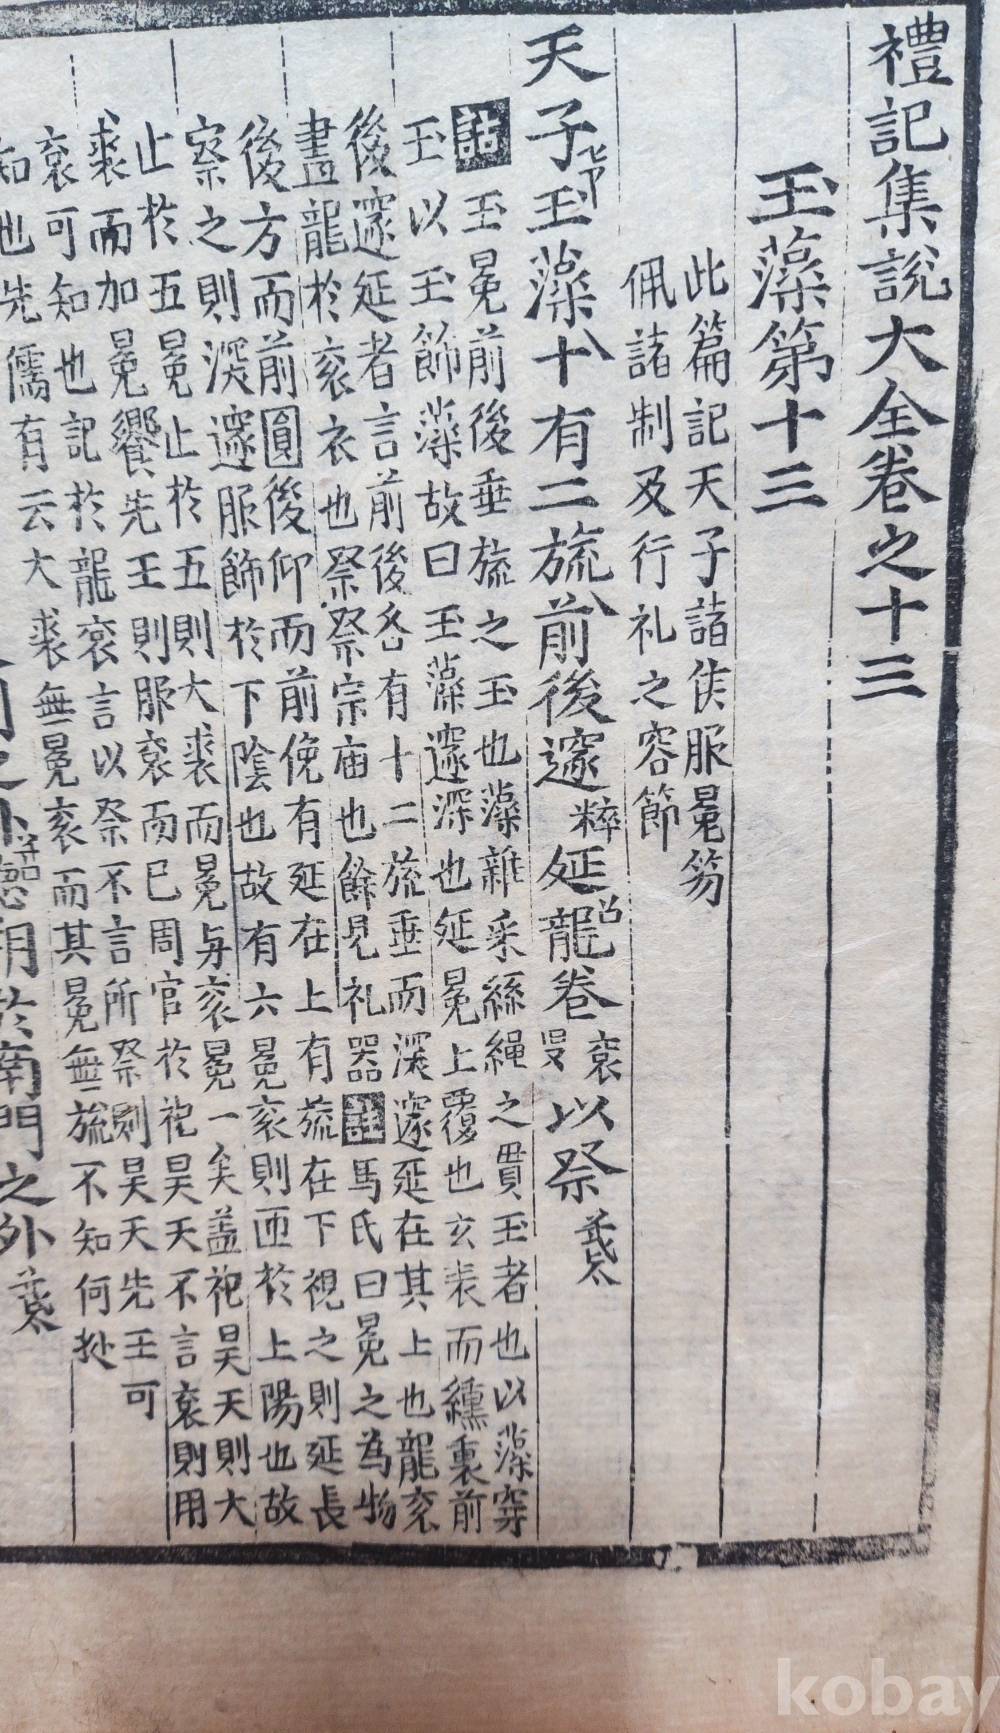 禮記集說大全卷之十三
玉藻第十三
此篇記天子諸侯服冕笏
佩諸制及行礼之容節
天子玉藻十有二旒前後邃粹延龍卷袞以祭
玉冕前後垂旒之玉也藻雜采絲繩之貫玉者也以藻穿
玉以玉飾藻故曰玉藻邃深也延冕上覆也玄表而纁裏前
後邃延者言前後各有十二旒垂而深邃延在其上也龍袞
畫龍於袞衣也祭祭宗庙也餘見礼器註馬氏曰冕之為物
後方而前圓後仰而前俛有延在上有旒在下視之則延長
察之則深邃服飾於下陰也故有六冕袞則匝於上陽也故
止於五冕止於五則大裘而冕与袞冕一矣盖祀昊天則大
裘而加冕饗先王則服袞而已周官於祀昊天不言袞則用
袞可知也記於龍袞言以祭不言所祭則昊天先王可
知也先儒有云大裘無冕袞而其冕無旒不知何㨿
南門之外
kobay